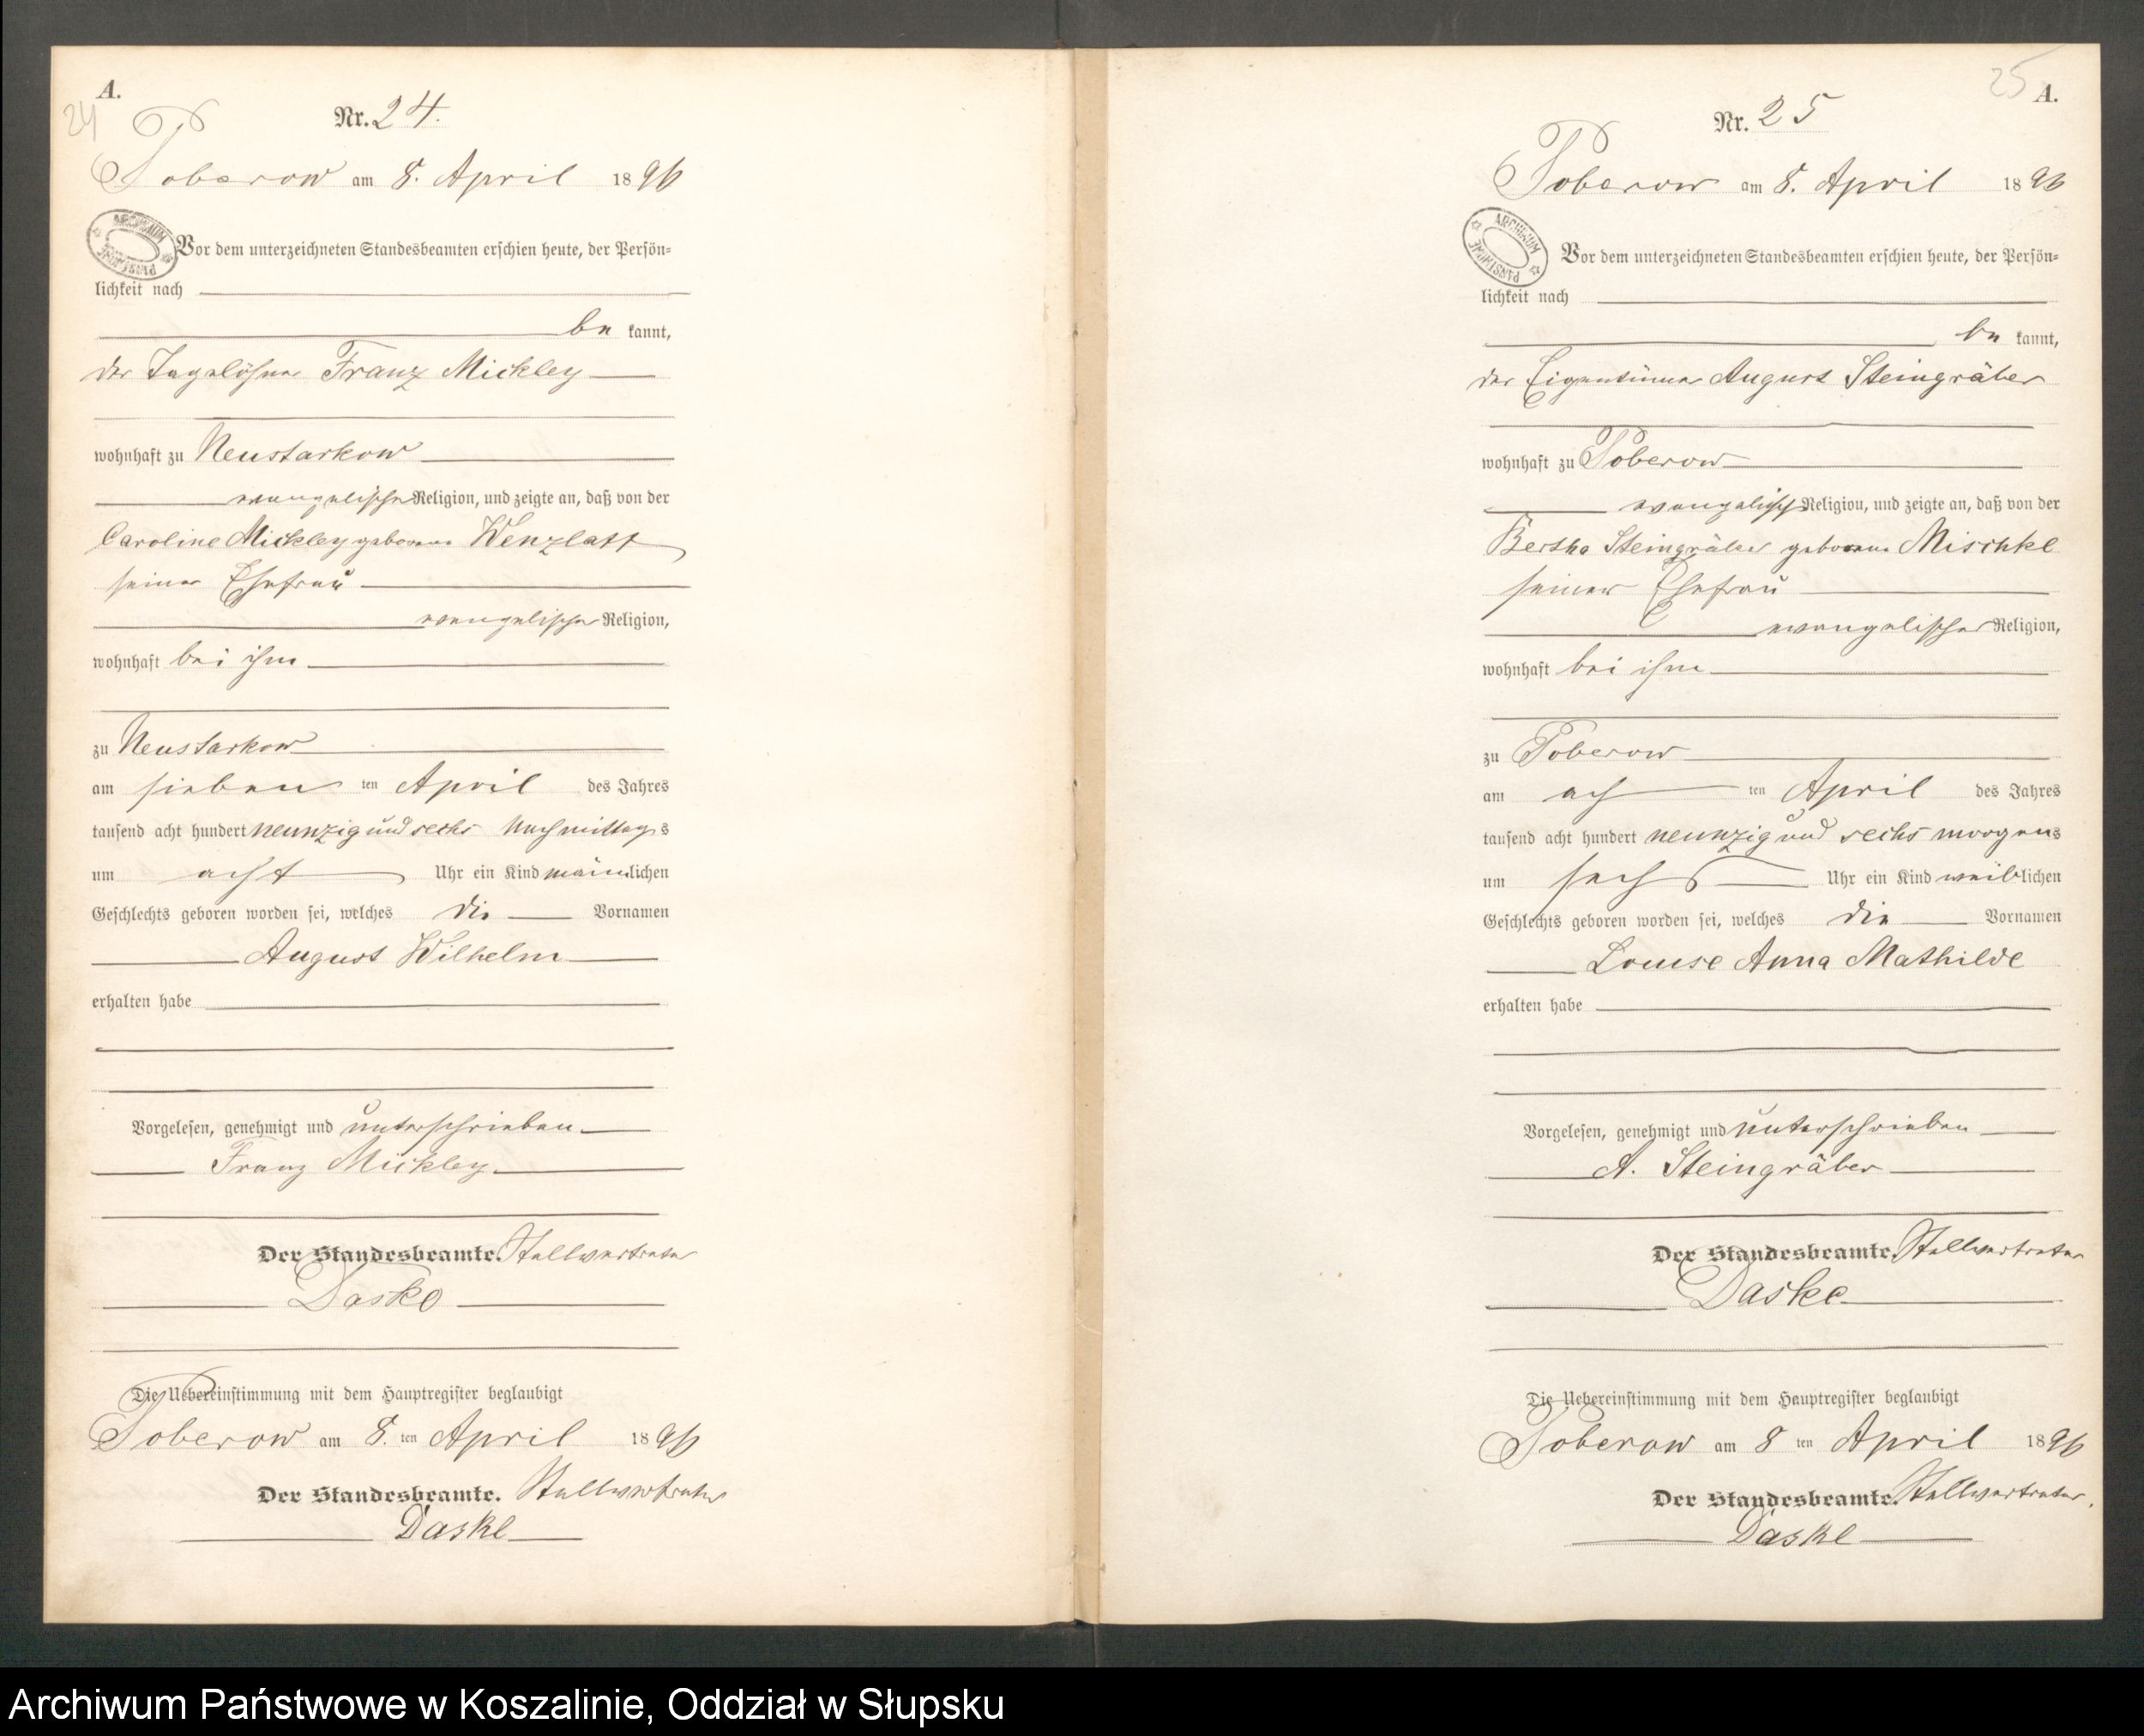 A.
24
Nr. 24.
Poberow am 8. April 1896
ARCHIWUM PAŃSTWOWE
Vor dem unterzeichneten Standesbeamten erschien heute, der Persön-
lichkeit nach
be kannt,
der Tagelöhner Franz Mickley
wohnhaft zu Neustarkow
evangelischer Religion, und zeigte an, daß von der
Caroline Mickley geborene Wenzlaff
seiner Ehefrau
evangelischer Religion,
wohnhaft bei ihm
zu Neustarkow
am sieben ten April des Jahres
tausend acht hundert neunzig und sechs Nachmittags
um acht Uhr ein Kind männlichen
Geschlechts geboren worden sei, welches die Vornamen
August Wilhelm
erhalten habe
Vorgelesen, genehmigt und unterschrieben
Franz Mickley
Der Standesbeamte. Stellvertreter
Daske
Die Uebereinstimmung mit dem Hauptregister beglaubigt
Poberow am 8. ten April 1896
Der Standesbeamte. Stellvertreter
Daske
25
A.
Nr. 25
Poberow am 8. April 1896
ARCHIWUM PAŃSTWOWE
Vor dem unterzeichneten Standesbeamten erschien heute, der Persön-
lichkeit nach
be kannt,
der Eigentümer August Steingräber
wohnhaft zu Poberow
evangelisch Religion, und zeigte an, daß von der
Bertha Steingräber geborene Mischke
seiner Ehefrau
evangelischer Religion,
wohnhaft bei ihm
zu Poberow
am ach ten April des Jahres
tausend acht hundert neunzig und sechs morgens
um sechs Uhr ein Kind weiblichen
Geschlechts geboren worden sei, welches die Vornamen
Louise Anna Mathilde
erhalten habe
Vorgelesen, genehmigt und unterschrieben
A. Steingräber
Der Standesbeamte. Stellvertreter
Daske
Die Uebereinstimmung mit dem Hauptregister beglaubigt
Poberow am 8 ten April 1896
Der Standesbeamte. Stellvertreter.
Daske
Archiwum Państwowe w Koszalinie, Oddział w Słupsku